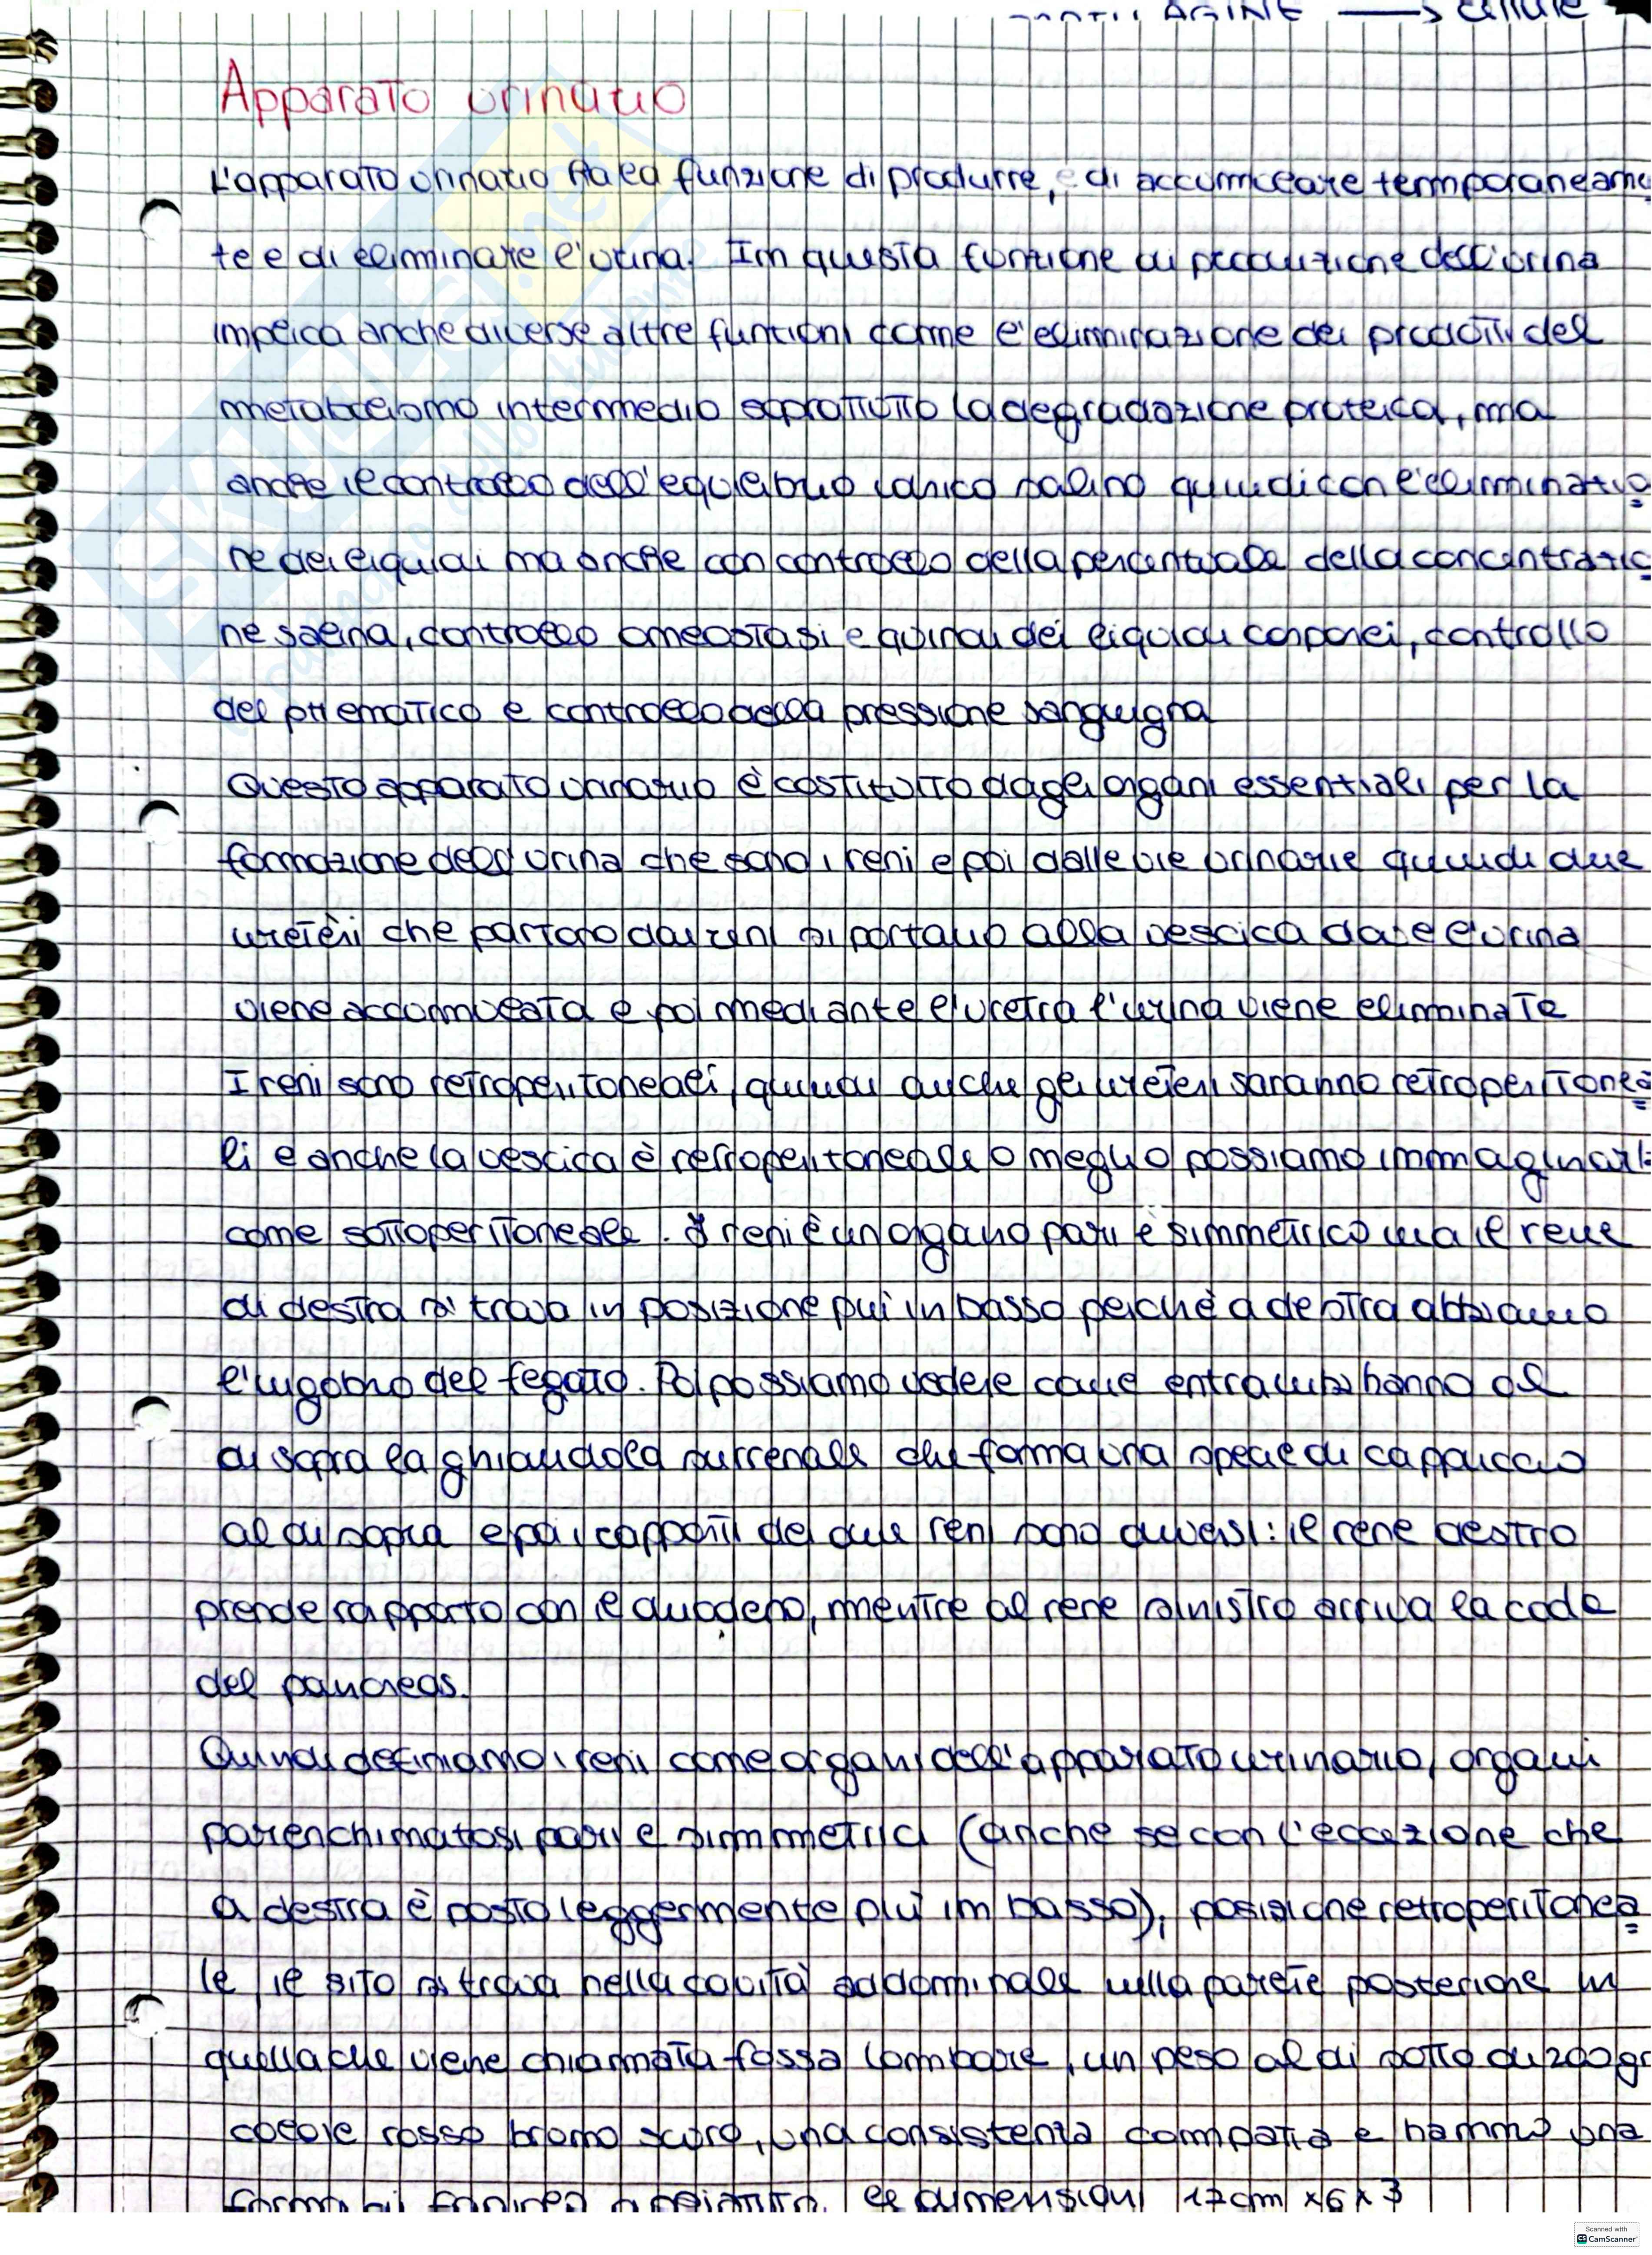 CARTILAGINE → cellule
Apparato urinario
L'apparato urinario ha la funzione di produrre, e di accumulare temporaneamen
te e di eliminare l'urina. Im questa funzione di produzione dell'urina
implica anche diverse altre funzioni come l'eliminazione dei prodotti del
metabolismo intermedio soprattutto la degradazione proteica, ma
anche il controllo dell'equilibrio idrico salino quindi con l'eliminazio
ne dei liquidi ma anche con controllo della percentuale della concentrazio
ne salina, controllo omeostasi e quindi dei liquidi corporei, controllo
del pH ematico e controllo della pressione sanguigna
Questo apparato urinario è costituito dagli organi essenziali per la
formazione dell'urina che sono i reni e poi dalle vie urinarie quindi due
uretèri che partono dai reni si portano alla vescica dove l'urina
viene accumulata e poi mediante l'uretra l'urina viene eliminate
I reni sono retroperitoneali, quindi anche gli ureteri saranno retroperitonea
li e anche la vescica è retroperitoneale o meglio possiamo immaginarli
come sottoperitoneale. I reni è un organo pari e simmetrico ma il rene
di destra si trova in posizione pui in basso perchè a destra abbiamo
l'ingobro del fegato. Poi possiamo vedere come entrambi hanno al
di sopra la ghiandola surrenale che forma una specie di cappuccio
al di sopra e poi i rapporti dei due reni sono diversi: il rene destro
prende rapporto con il duodeno, mentre al rene sinistro arriva la coda
del pancreas.
Quindi definiamo i reni come organi dell'apparato urinario, organi
parenchimatosi pari e simmetrici (anche se con l'eccezione che
a destra è posto leggermente più im basso), posizione retroperitonea
le, il sito si trova nella cavità addominale sulla parete posteriore in
quella che viene chiamata fossa lombare, un peso al di sotto di 200 gr
colore rosso bruno scuro, una consistenza compatta e hanno una
forma di fagiolo appiattito. Le dimensioni 12 cm x 6 x 3
SKUOLA.net
il paradiso dello studente
Scanned with
CS CamScanner